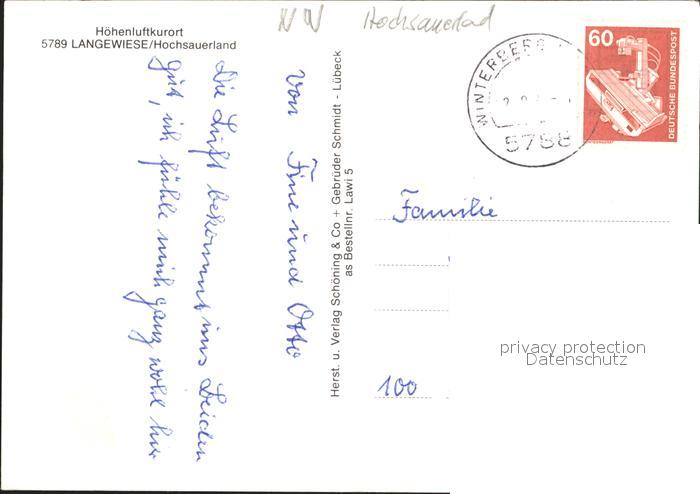 Höhenluftkurort
5789 LANGEWIESE/Hochsauerland
NW Hochsauerlad
WINTERBERG
5788
60
DEUTSCHE BUNDESPOST
gut, ich fühle mich ganz wohl hir
die Luft bekommt uns beiden
von Fine und Otto
Herst. u. Verlag Schöning & Co + Gebrüder Schmidt - Lübeck
as Bestellnr. Lawi 5
Familie
100
privacy protection
Datenschutz